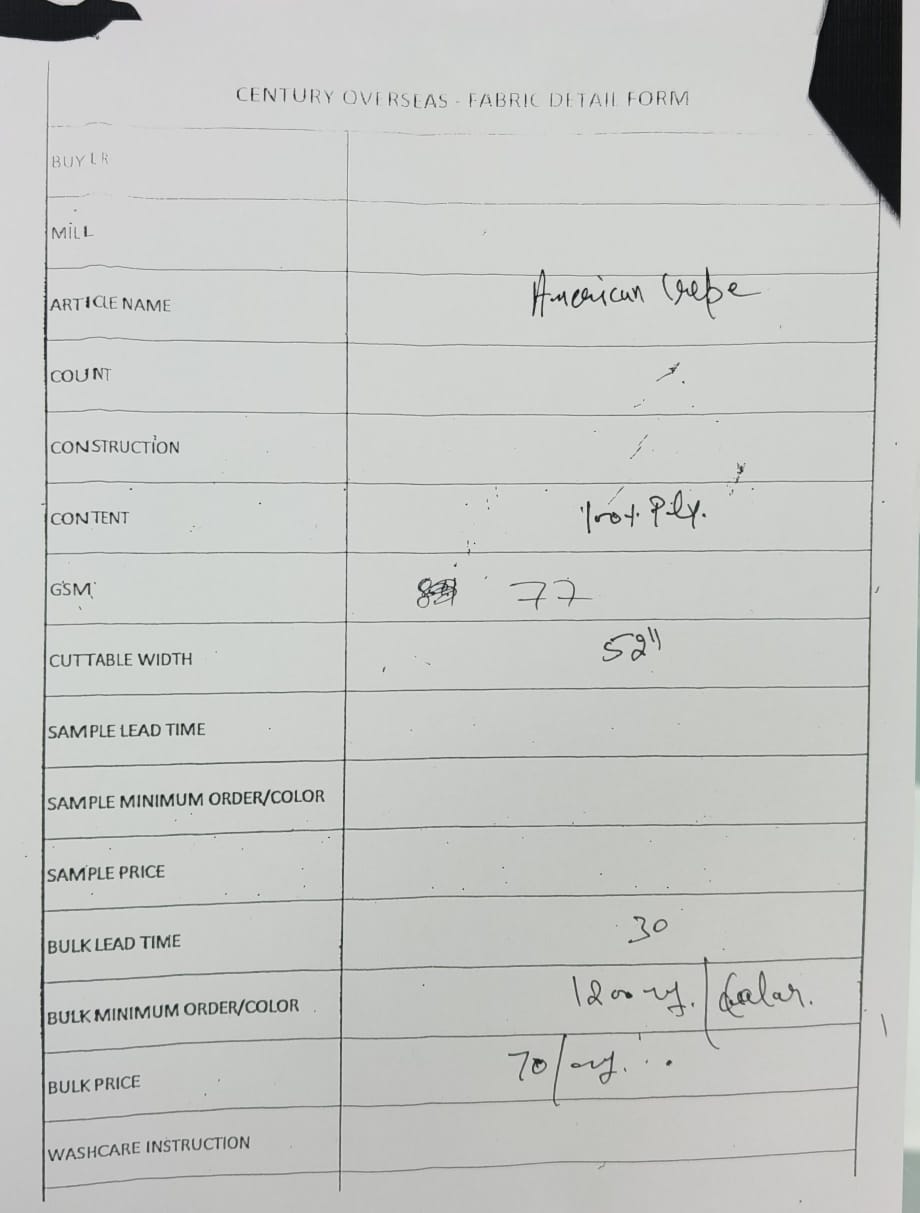 CENTURY OVERSEAS - FABRIC DETAIL FORM
BUYER
MILL
ARTICLE NAME American Crepe
COUNT
CONSTRUCTION
CONTENT 100% Ply.
GSM 77
CUTTABLE WIDTH 52"
SAMPLE LEAD TIME
SAMPLE MINIMUM ORDER/COLOR
SAMPLE PRICE
BULK LEAD TIME 30
BULK MINIMUM ORDER/COLOR 1200
BULK PRICE 70/
WASHCARE INSTRUCTION